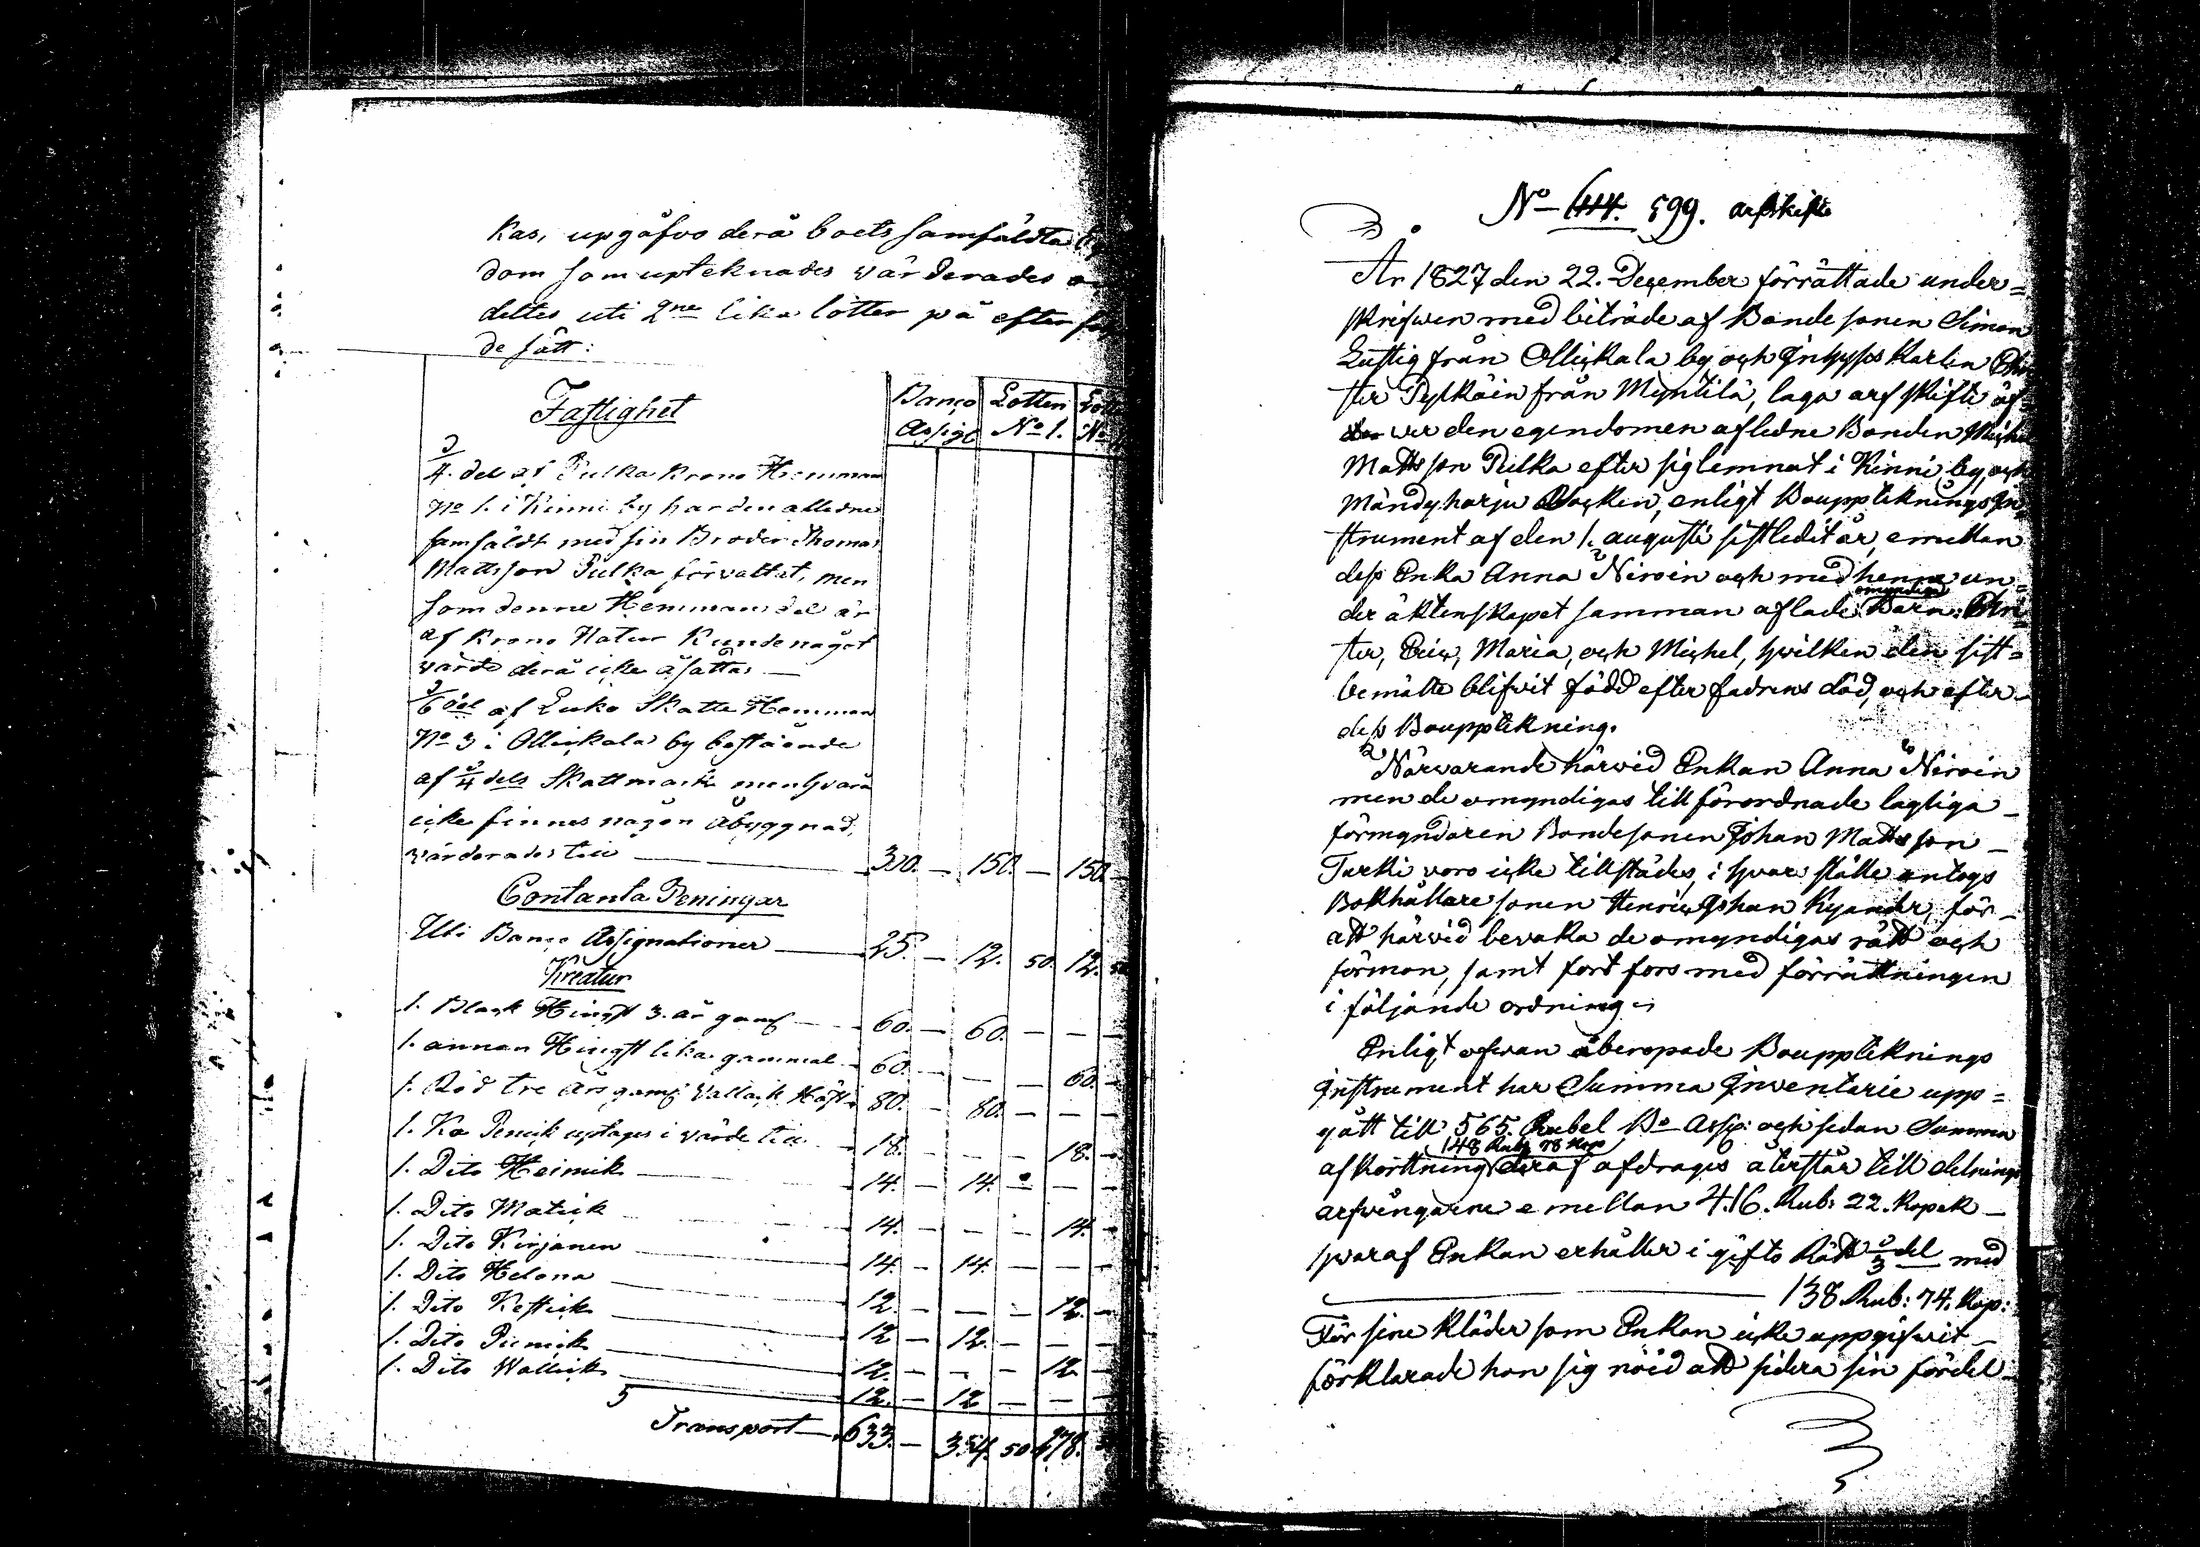 Kas, upgåfvos derå boets samfäldta
dom som upteknades värderades
deltes uti 2ne lika lotter på efter
de sätt:
Fastighet
Banco Assigt
Lotten No 1.
3/4. del af Pulka Krono Hemman
No 1. i Kinni by har den aflidne
samfäldt med sin Broder Thomas
Mattsson Pulka förvaltat, men
som denne Hemmans del är
af Krono Natur kunde något
värde derå icke åsättas —
3/6 del af Luko Skatte Hemman
No 3 i Ollickala by bestående
af 3/4 dels Skattmark men hvara
icke finnes någon Åbyggnad,
värderades till — 300. — 150. — 150. —
Contanta Peningar
Uti Banco Assignationer — 25. — 12. 50. 12. 50
Kreatur
1. Black Hingst 3. år gaml — 60. — 60. — — —
1. annan Hingst lika gammal — 60. — — — 60. —
1. Röd tre års gaml Vallack Häst 80. — 80. — — —
1. Ko Penik uptages i värde till — 18. — — — 18. —
1. Dito Heimik — 14. — 14. — — —
1. Dito Matick — 14. — — — 14. —
1. Dito Kirjanen — 14. — 14. — — —
1. Dito Helona — 12. — — — 12. —
1. Dito Kestick — 12 — 12. — — —
1. Dito Piemik — 12. — — — 12 —
1. Dito Wallick — 12. — 12 — — —
Transport — 633. — 354. 50 278.
No 414. 599. arfskifte
År 1827 den 22. December förrättade under=
skrifwen med biträde af Bonde sonen Simon
Lustig från Ollickala by och Inhyses Karlen
ster Pylkäin från Myntilä, laga arf skifte öf=
wer den egendomen aflidne Bonden Michel
Matts son Pulka efter sig lemnat i Kinni by, och
Mändyharju Socken, enligt Bouppteknings In
strument af den 1. augusti sistledit år, emellan
dess Enka Anna Niroin och med henne un=
der äktenskapet samman aflade omyndiga Barn: Chri
ster, Eric, Maria, och Michel, hvilken den sist=
bemälte blifvit född efter fadrens död, och efter
dess Bouppteckning.
Närwarande härwid Enkan Anna Niroin
men de omyndigas till förordnade lagliga
förmyndaren Bondesonen Johan Matts son
Turki voro icke tillstädes, i hvars ställe antogs
Bokhållare sonen Henric Johan Kyander, för
att härvid bevaka de omyndigas rätt och
förmon, samt fort fors med förrättningen
i följande ordning.
Enligt ofwan åberopade Bouppteknings
Instrument har Summa Inventarie upp=
gått till 565 Rubel Bo Assig: och sedan Summa
afkorttning 148 Rub 78 Kop deraf afdrages återstår till delning
arfwingarne emellan 416. Rub: 22. Kopek —
hvaraf Enkan erhåller i gifto Rätt 1/3 del med
— 138 Rub: 74. Kop:
För sine kläder som Enkan icke uppgifwit —
förklarade hon sig nöid att sidera sin fördel